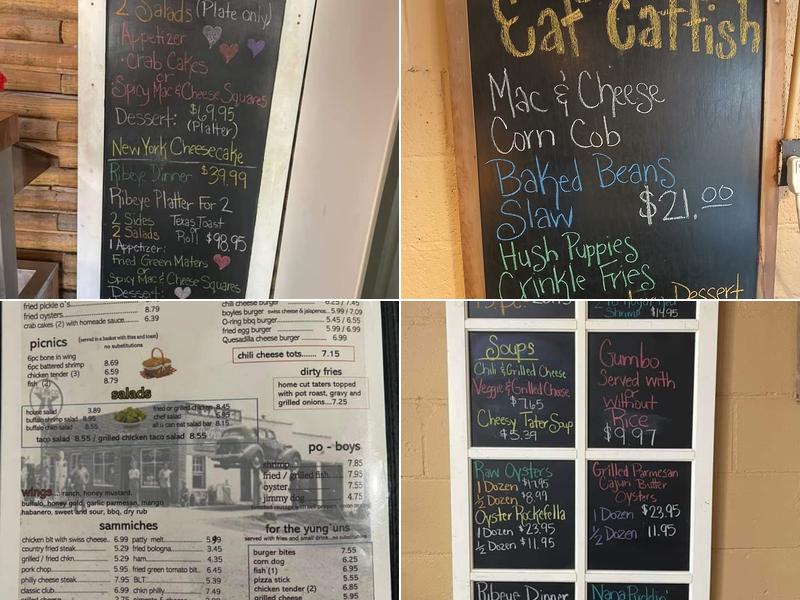 2 Salads (Plate only)
Appetizer
Crab Cakes
or
Spicy Mac & Cheese Squares
$69.95
Dessert: (Platter)
New York Cheesecake
Ribeye Dinner $39.99
Ribeye Platter For 2
2 Sides Texas Toast
2 Salads or Roll $98.95
1 Appetizer:
Fried Green Maters
or
Spicy Mac & Cheese Squares
Dessert:
Eat Catfish
Mac & Cheese
Corn Cob
Baked Beans
Slaw $21.00
Hush Puppies
Crinkle Fries
Dessert
fried pickle o's
fried oysters 8.79
crab cakes (2) with homeade sauce 6.39
picnics (served in a basket with fries and toast)
no substitutions
6pc bone in wing 8.69
6pc battered shrimp 8.59
chicken tender (3) 6.59
fish (2) 8.79
salads
house salad 3.89
buffalo shrimp salad 8.95
buffalo chkn salad 8.55
fried or grilled chicken 8.45
chef salad 6.85
all u can eat salad bar 8.15
taco salad 8.55 / grilled chicken taco salad 8.55
wings... ranch, honey mustard,
buffalo, honey gold, garlic parmesan, mango
habanero, sweet and sour, bbq, dry rub
sammiches
chicken bit with swiss cheese.. 6.99
country fried steak 5.29
grilled / fried chkn 5.29
pork chop 5.95
philly cheese steak 7.95
classic club 6.99
grilled cheese
patty melt 5.99
fried bologna 3.45
ham 4.35
fried green tomato blt.. 6.45
BLT 5.39
chkn philly 7.49
chili cheese burger 6.25 / 7.45
boyles burger swiss cheese & jalapenos.. 5.99 / 7.09
O-ring bbq burger 5.45 / 6.55
fried egg burger 5.99 / 6.99
Quesadilla cheese burger 6.99
chili cheese tots....... 7.15
dirty fries
home cut taters topped
with pot roast, gravy and
grilled onions...7.25
po - boys
shrimp 7.85
fried / grilled fish 7.95
oyster 7.55
jimmy dog 4.75
for the yung 'uns
served with fries and small drink...no substitutions
burger bites 7.55
corn dog 6.25
fish (1) 6.95
pizza stick 5.55
chicken tender (2) 6.85
grilled cheese 5.95
Shrimp $14.95
Soups
Chili & Grilled Cheese
Veggie & Grilled Cheese
$7.65
Cheesy Tater Soup
$5.39
Gumbo
Served with
or
Without
Rice
$9.97
Raw Oysters
1 Dozen $17.95
½ Dozen $8.99
Oyster Rockefella
1 Dozen $23.95
½ Dozen $11.95
Grilled Parmesan
Cajun Butter
Oysters
1 Dozen $23.95
½ Dozen 11.95
Ribeye Dinner
Nana Puddin'